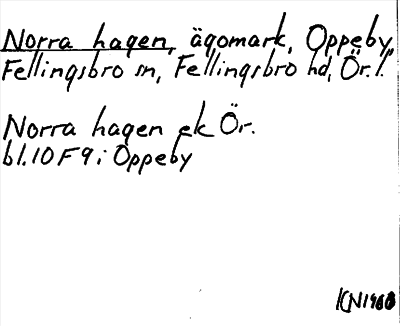 Norra hagen, ägomark, Oppeby,
Fellingsbro sn, Fellingsbro hd, Ör. l.
Norra hagen ek Ör.
bl. 10 F 9 i Oppeby